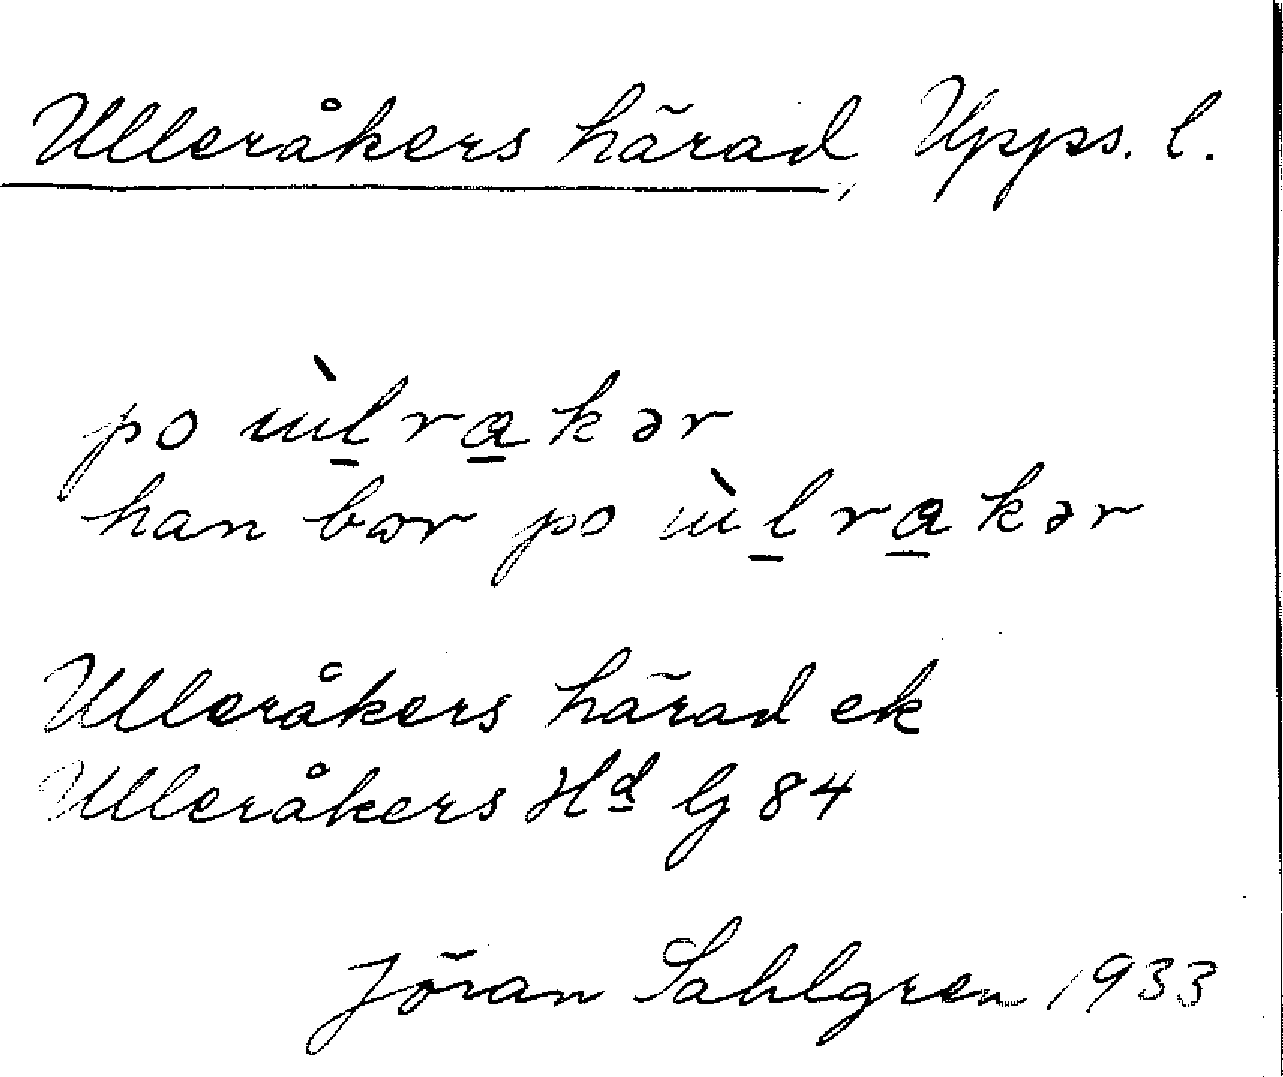 Ulleråkers härad, Upps. l.
po ɯ̀l̲ra̲kər
han bor po ɯ̀l̲ra̲kər
Ulleråkers härad ek
Ulleråkers Hd G 84
Jöran Sahlgren 1933